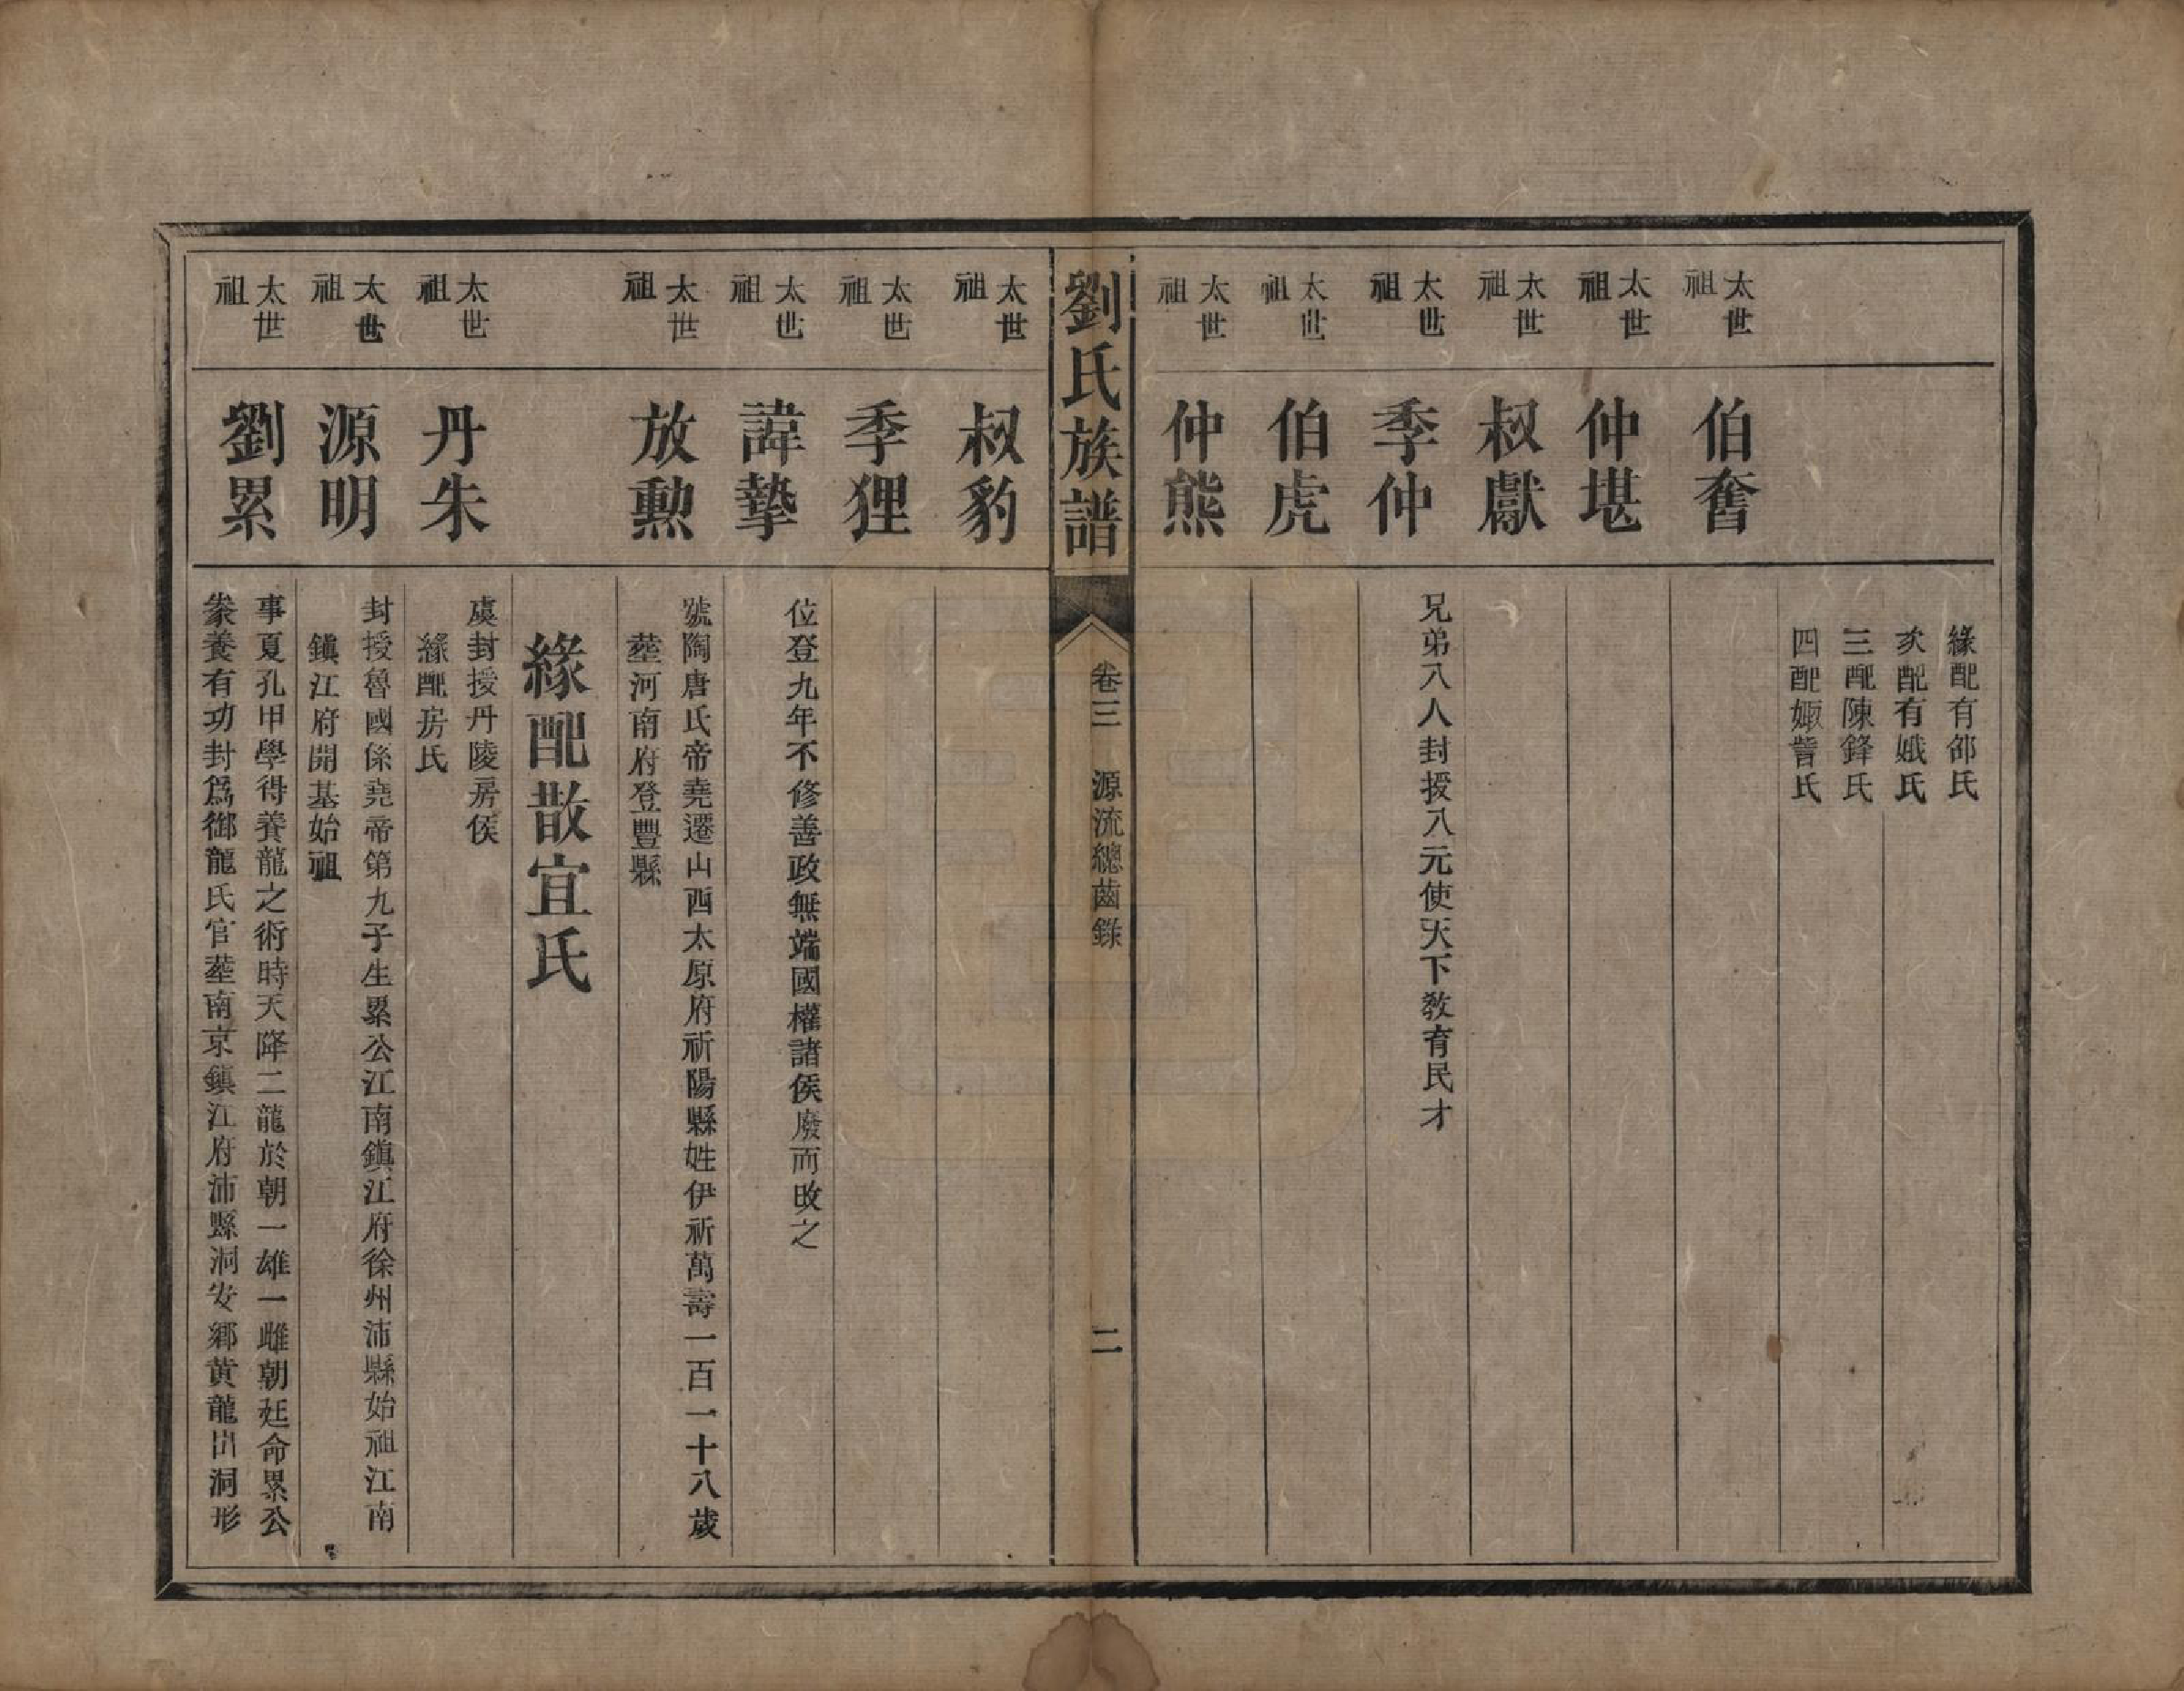 緣配有邰氏
次配有娥氏
三配陳鋒氏
四配娵訾氏
太世祖
伯奮
太世祖
仲堪
太世祖
叔獻
太世祖
季仲
兄弟八人封授八元使天下教育民才
太世祖
伯虎
太世祖
仲熊
劉氏族譜
卷三 源流總齒錄
二
太世祖
叔豹
太世祖
季狸
太世祖
諱摯
位登九年不修善政無端國權諸侯廢而改之
太世祖
放勲
號陶唐氏帝堯遷山西太原府祈陽縣姓伊祈萬壽一百一十八歲
塟河南府登豐縣
緣配散宜氏
太世祖
丹朱
虞封授丹陵房侯
緣配房氏
太世祖
源明
封授魯國係堯帝第九子生累公江南鎮江府徐州沛縣始祖江南
鎮江府開基始祖
太世祖
劉累
事夏孔甲學得養龍之術時天降二龍於朝一雄一雌朝廷命累公
豢養有功封爲御龍氏官塟南京鎮江府沛縣洞安鄉黄龍出洞形